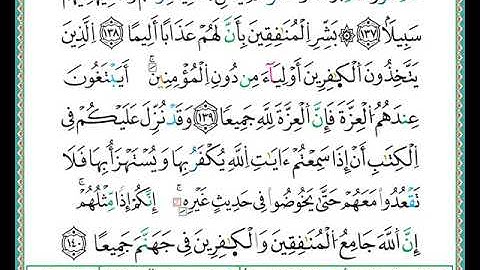 سَبِيلًا ۝١٣٧ ۞ بَشِّرِ اِ۬لْمُنَٰفِقِينَ بِأَنَّ لَهُمْ عَذَابًا أَلِيمًا ۝١٣٨ اِ۬لذِينَ
يَتَّخِذُونَ اَ۬لْكَٰفِرِينَ أَوْلِيَآءَ مِن دُونِ اِ۬لْمُؤْمِنِينَۖ أَيَبْتَغُونَ
عِندَهُمُ اُ۬لْعِزَّةَ فَإِنَّ اَ۬لْعِزَّةَ لِلهِ جَمِيعًا ۝١٣٩ وَقَدْ نُزِّلَ عَلَيْكُمْ فِي
اِ۬لْكِتَٰبِ أَنِ اِذَا سَمِعْتُمُۥٓ ءَايَٰتِ اِ۬للَّهِ يُكْفَرُ بِهَا وَيُسْتَهْزَأُ بِهَا فَلَا
تَقْعُدُواْ مَعَهُمْ حَتَّىٰ يَخُوضُواْ فِي حَدِيثٍ غَيْرِهِۦٓۖ إِنَّكُمُۥٓ إِذًا مِّثْلُهُمُۥٓۖ
إِنَّ اَ۬للَّهَ جَامِعُ اُ۬لْمُنَٰفِقِينَ وَالْكَٰفِرِينَ فِي جَهَنَّمَ جَمِيعًا ۝١٤٠